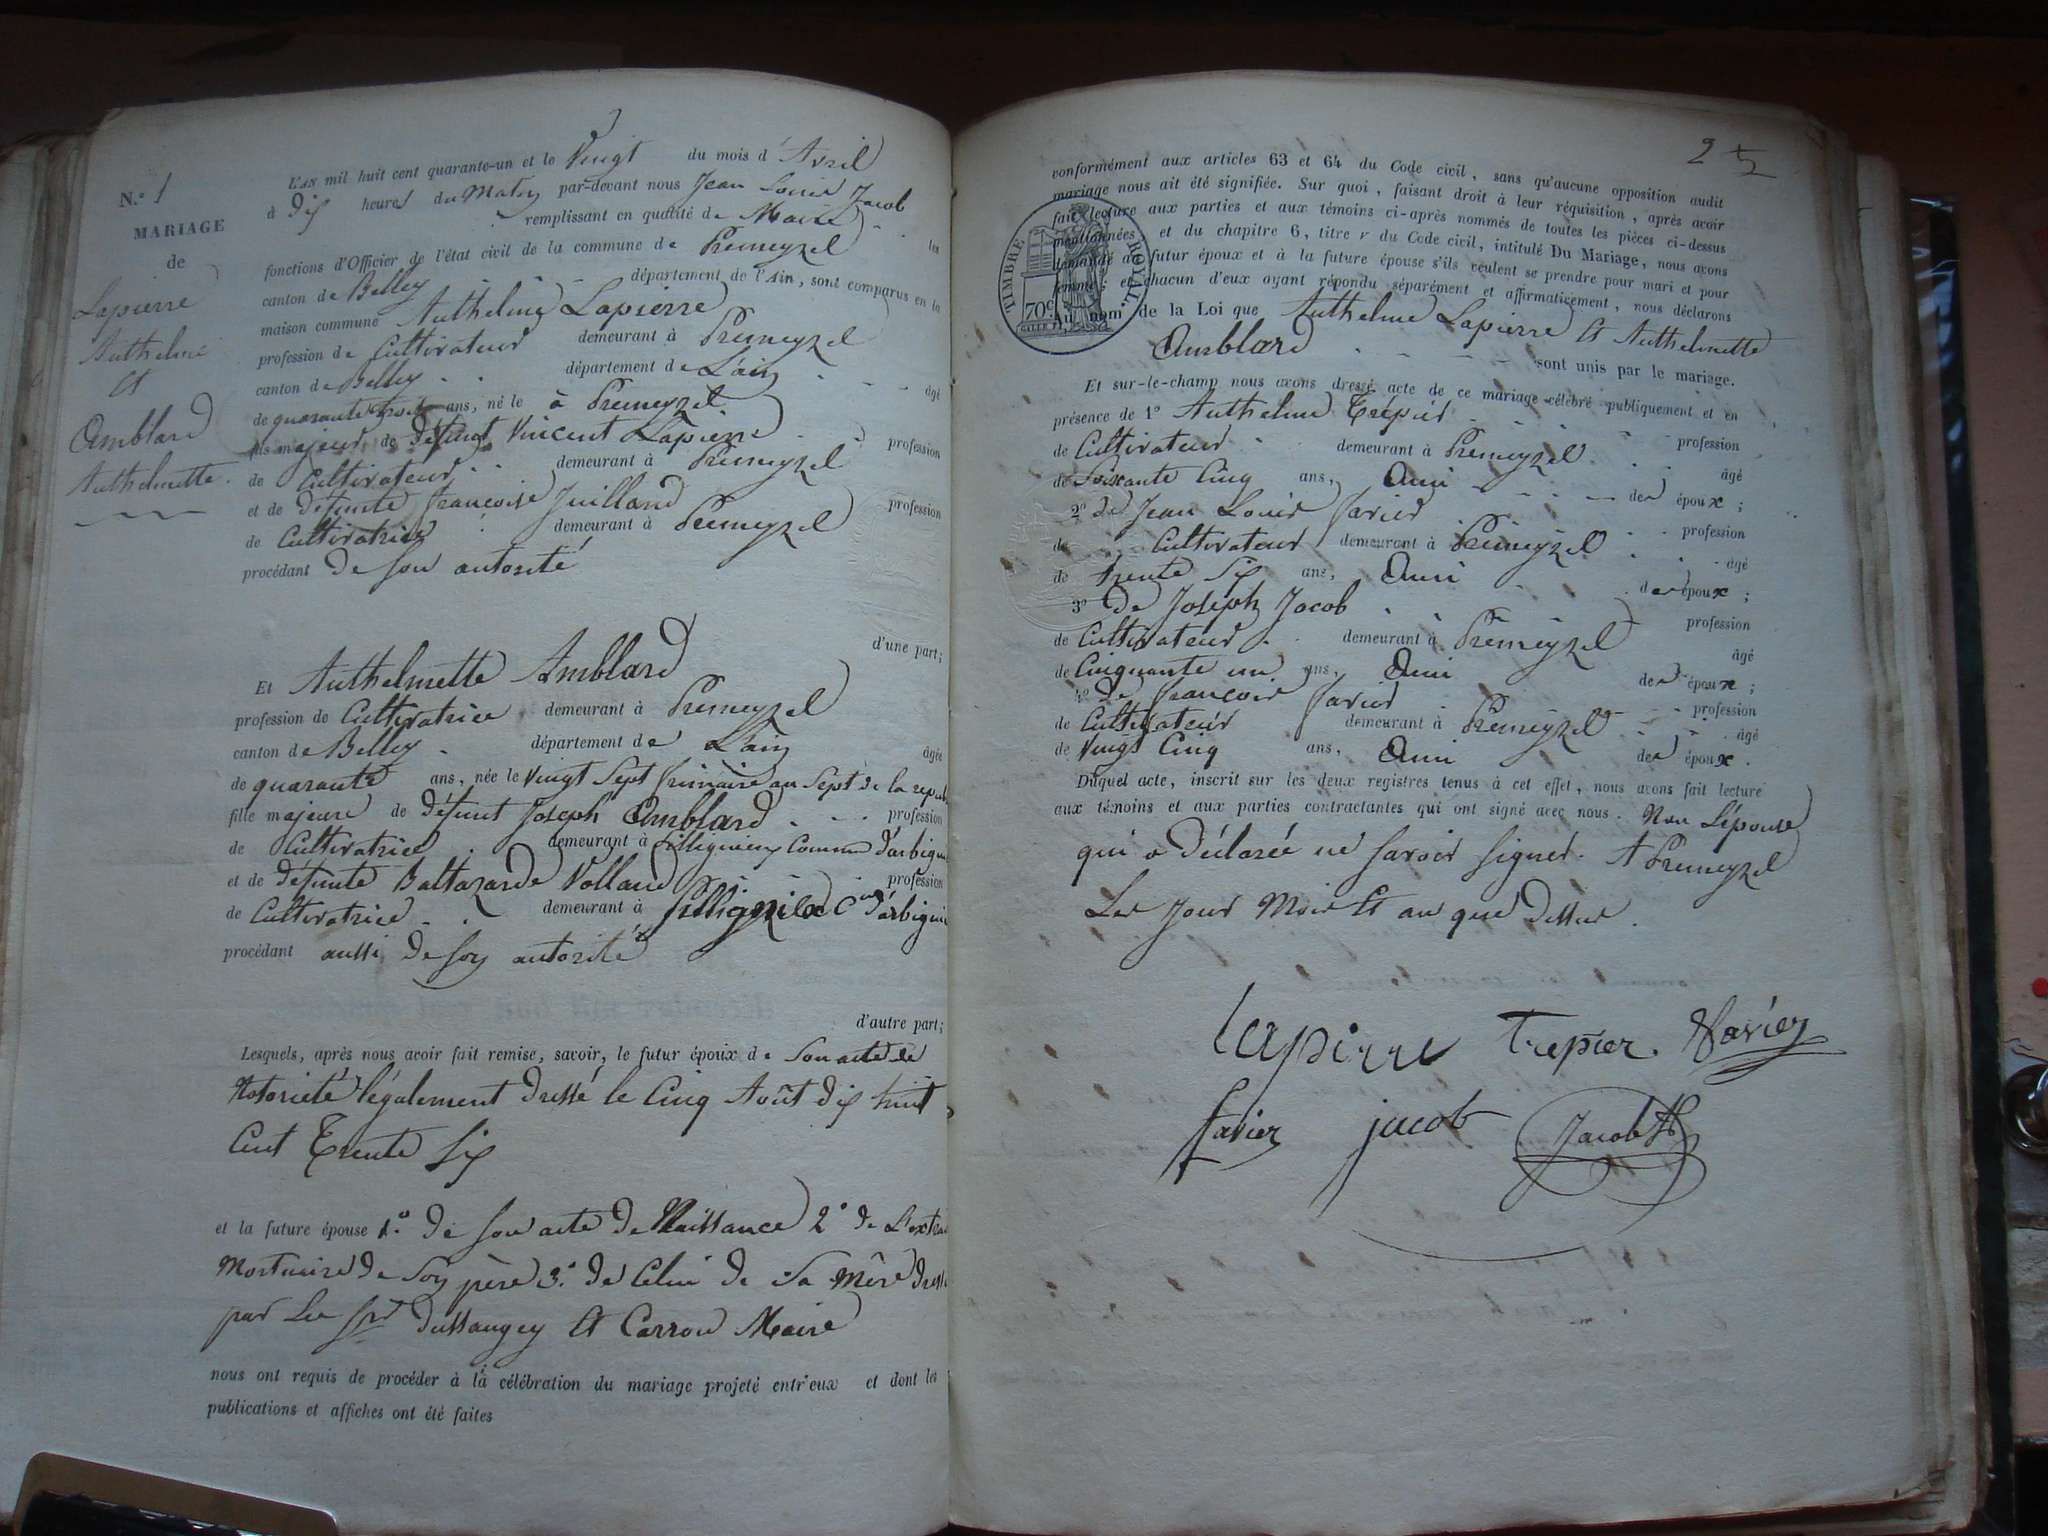 N.° 1
MARIAGE
de
Lapierre
Anthelme
Et
Amblard
Anthelmette.
L'AN mil huit cent quarante-un et le Vingt du mois d'Avril
à Dix heures du Matin par-devant nous Jean Louis Jacob
remplissant en qualité de Maire les
fonctions d'Officier de l'état civil de la commune de Premeyzel
canton de Belley département de l'Ain, sont comparus en la
maison commune Anthelme Lapierre
profession de Cultivateur demeurant à Premeyzel
canton de Belley département de L'ain âgé
de quarante trois ans, né le à Premeyzel
fils majeur de défunt Vincent Lapierre profession
de Cultivateur demeurant à Premeyzel
et de défunte francoise Juilland profession
de Cultivatrice demeurant à Premeyzel
procédant de son autorité
d'une part;
Et Anthelmette Amblard
profession de Cultivatrice demeurant à Premeyzel
canton de Belley département de L'ain âgée
de quarante ans, née le Vingt Sept frimaire an Sept de la repub
fille majeure de défunt Joseph Amblard profession
de Cultivatrice demeurant à Commune d'arbignieu
et de défunte Baltazarde Volland profession
de Cultivatrice demeurant à d'arbignieu
procédant aussi de son autorité
d'autre part;
Lesquels, après nous avoir fait remise, savoir, le futur époux de Son acte de
Notorieté légalement dressé le Cinq Août dix huit
Cent Trente Six
et la future épouse 1.° de son acte de Naissance 2° de L'extrait
Mortuaire de Son père 3.° de Celui de Sa Mère dressé
par Les Srs dussaugey Et Carrou Maire
nous ont requis de procéder à la célébration du mariage projeté entr'eux et dont les
publications et affiches ont été faites
25
conformément aux articles 63 et 64 du Code civil, sans qu'aucune opposition audit
mariage nous ait été signifiée. Sur quoi, faisant droit à leur réquisition, après avoir
fait lecture aux parties et aux témoins ci-après nommés de toutes les pièces ci-dessus
mentionnées, et du chapitre 6, titre v du Code civil, intitulé Du Mariage, nous avons
demandé au futur époux et à la future épouse s'ils veulent se prendre pour mari et pour
femme; et chacun d'eux ayant répondu séparément et affirmativement, nous déclarons
Au nom de la Loi que Anthelme Lapierre Et Anthelmette
Amblard sont unis par le mariage.
TIMBRE ROYAL.
70c
Et sur-le-champ nous avons dressé acte de ce mariage célébré publiquement et en
présence de 1° Anthelme Trépier profession
de Cultivateur demeurant à Premeyzel âgé
de Soixante Cinq ans, Ami des époux;
2° de Jean Louis favier profession
de Cultivateur demeurant à Premeyzel âgé
de trente Six ans, Ami des époux;
3° de Joseph Jacob profession
de Cultivateur demeurant à Premeyzel âgé
de Cinquante un ans, Ami des époux;
4° de francois favier profession
de Cultivateur demeurant à Premeyzel âgé
de Vingt Cinq ans, Ami des époux.
Duquel acte, inscrit sur les deux registres tenus à cet effet, nous avons fait lecture
aux témoins et aux parties contractantes qui ont signé avec nous. Non L'épouse
qui a déclarée ne savoir signer. A Premeyzel
Les Jour Mois Et an que dessus.
lapierre trepier. favier
favier jacob Jacob